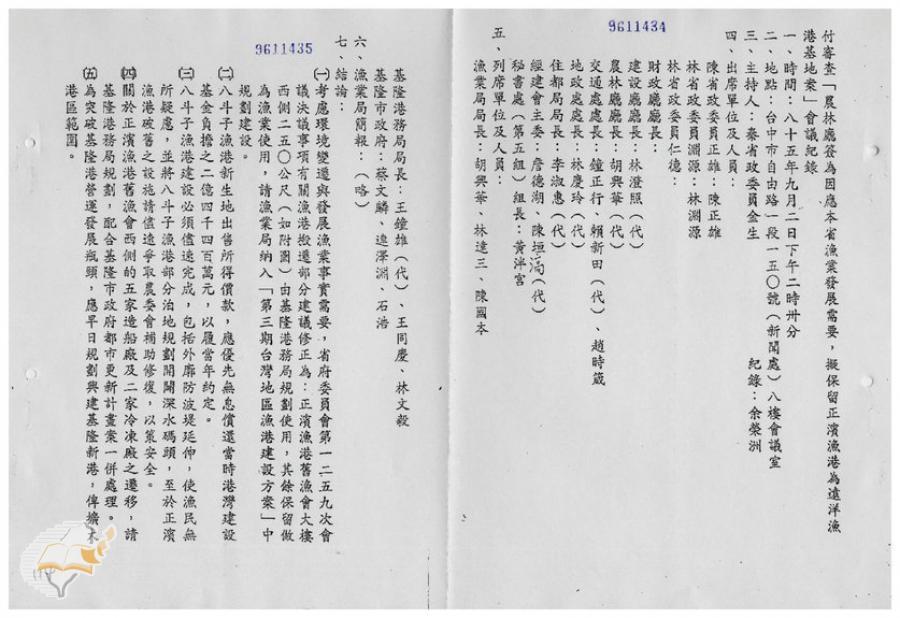 9611434
付審查「農林廳簽為因應本省漁業發展需要，擬保留正濱漁港為遠洋漁
港基地案」會議紀錄
一、時間：八十五年九月二日下午二時卅分
二、地點：台中市自由路一段一五〇號（新聞處）八樓會議室
三、主持人：秦省政委員金生
紀錄：余榮洲
四、出席單位及人員：
陳省政委員正雄：陳正雄
林省政委員淵源：林淵源
林省政委員仁德：
財政廳廳長：
建設廳廳長：林澄照（代）
農林廳廳長：胡興華（代）
交通處處長：鐘正行、賴新田（代）、趙時箴
地政處處長：林慶玲（代）
住都局局長：李淑惠（代）
經建會主委：詹德湖、陳垣滈（代）
秘書處（第五組）組長：黃泮宮
五、列席單位及人員：
漁業局局長：胡興華、林達三、陳國本
9611435
基隆港務局局長：王鐘雄（代）、王同慶、林文毅
基隆市政府：蔡文麟、連澤淵、石浩
六、漁業局簡報：（略）
七、結論：
㈠考慮環境變遷與發展漁業事實需要，省府委員會第一二五九次會
議決議事項有關漁港搬遷部分建議修正為：正濱漁港舊漁會大樓
西側二五〇公尺（如附圖）由基隆港務局規劃使用，其餘保留做
為漁業使用，請漁業局納入「第三期台灣地區漁港建設方案」中
規劃建設。
㈡八斗子漁港新生地出售所得價款，應優先無息償還當時港灣建設
基金負擔之二億四千四百萬元，以履當年約定。
㈢八斗子漁港建設必須儘速完成，包括外廓防波堤延伸，使漁民無
所疑慮，並將八斗子漁港部分泊地規劃開闢深水碼頭，至於正濱
漁港破舊之設施請儘速爭取農委會補助修復，以策安全。
㈣關於正濱漁港舊漁會西側的五家造船廠及二家冷凍廠之遷移，請
基隆港務局規劃，配合基隆市政府都市更新計畫案一併處理。
㈤為突破基隆港營運發展瓶頸，應早日規劃興建基隆新港，俾擴大
港區範圍。